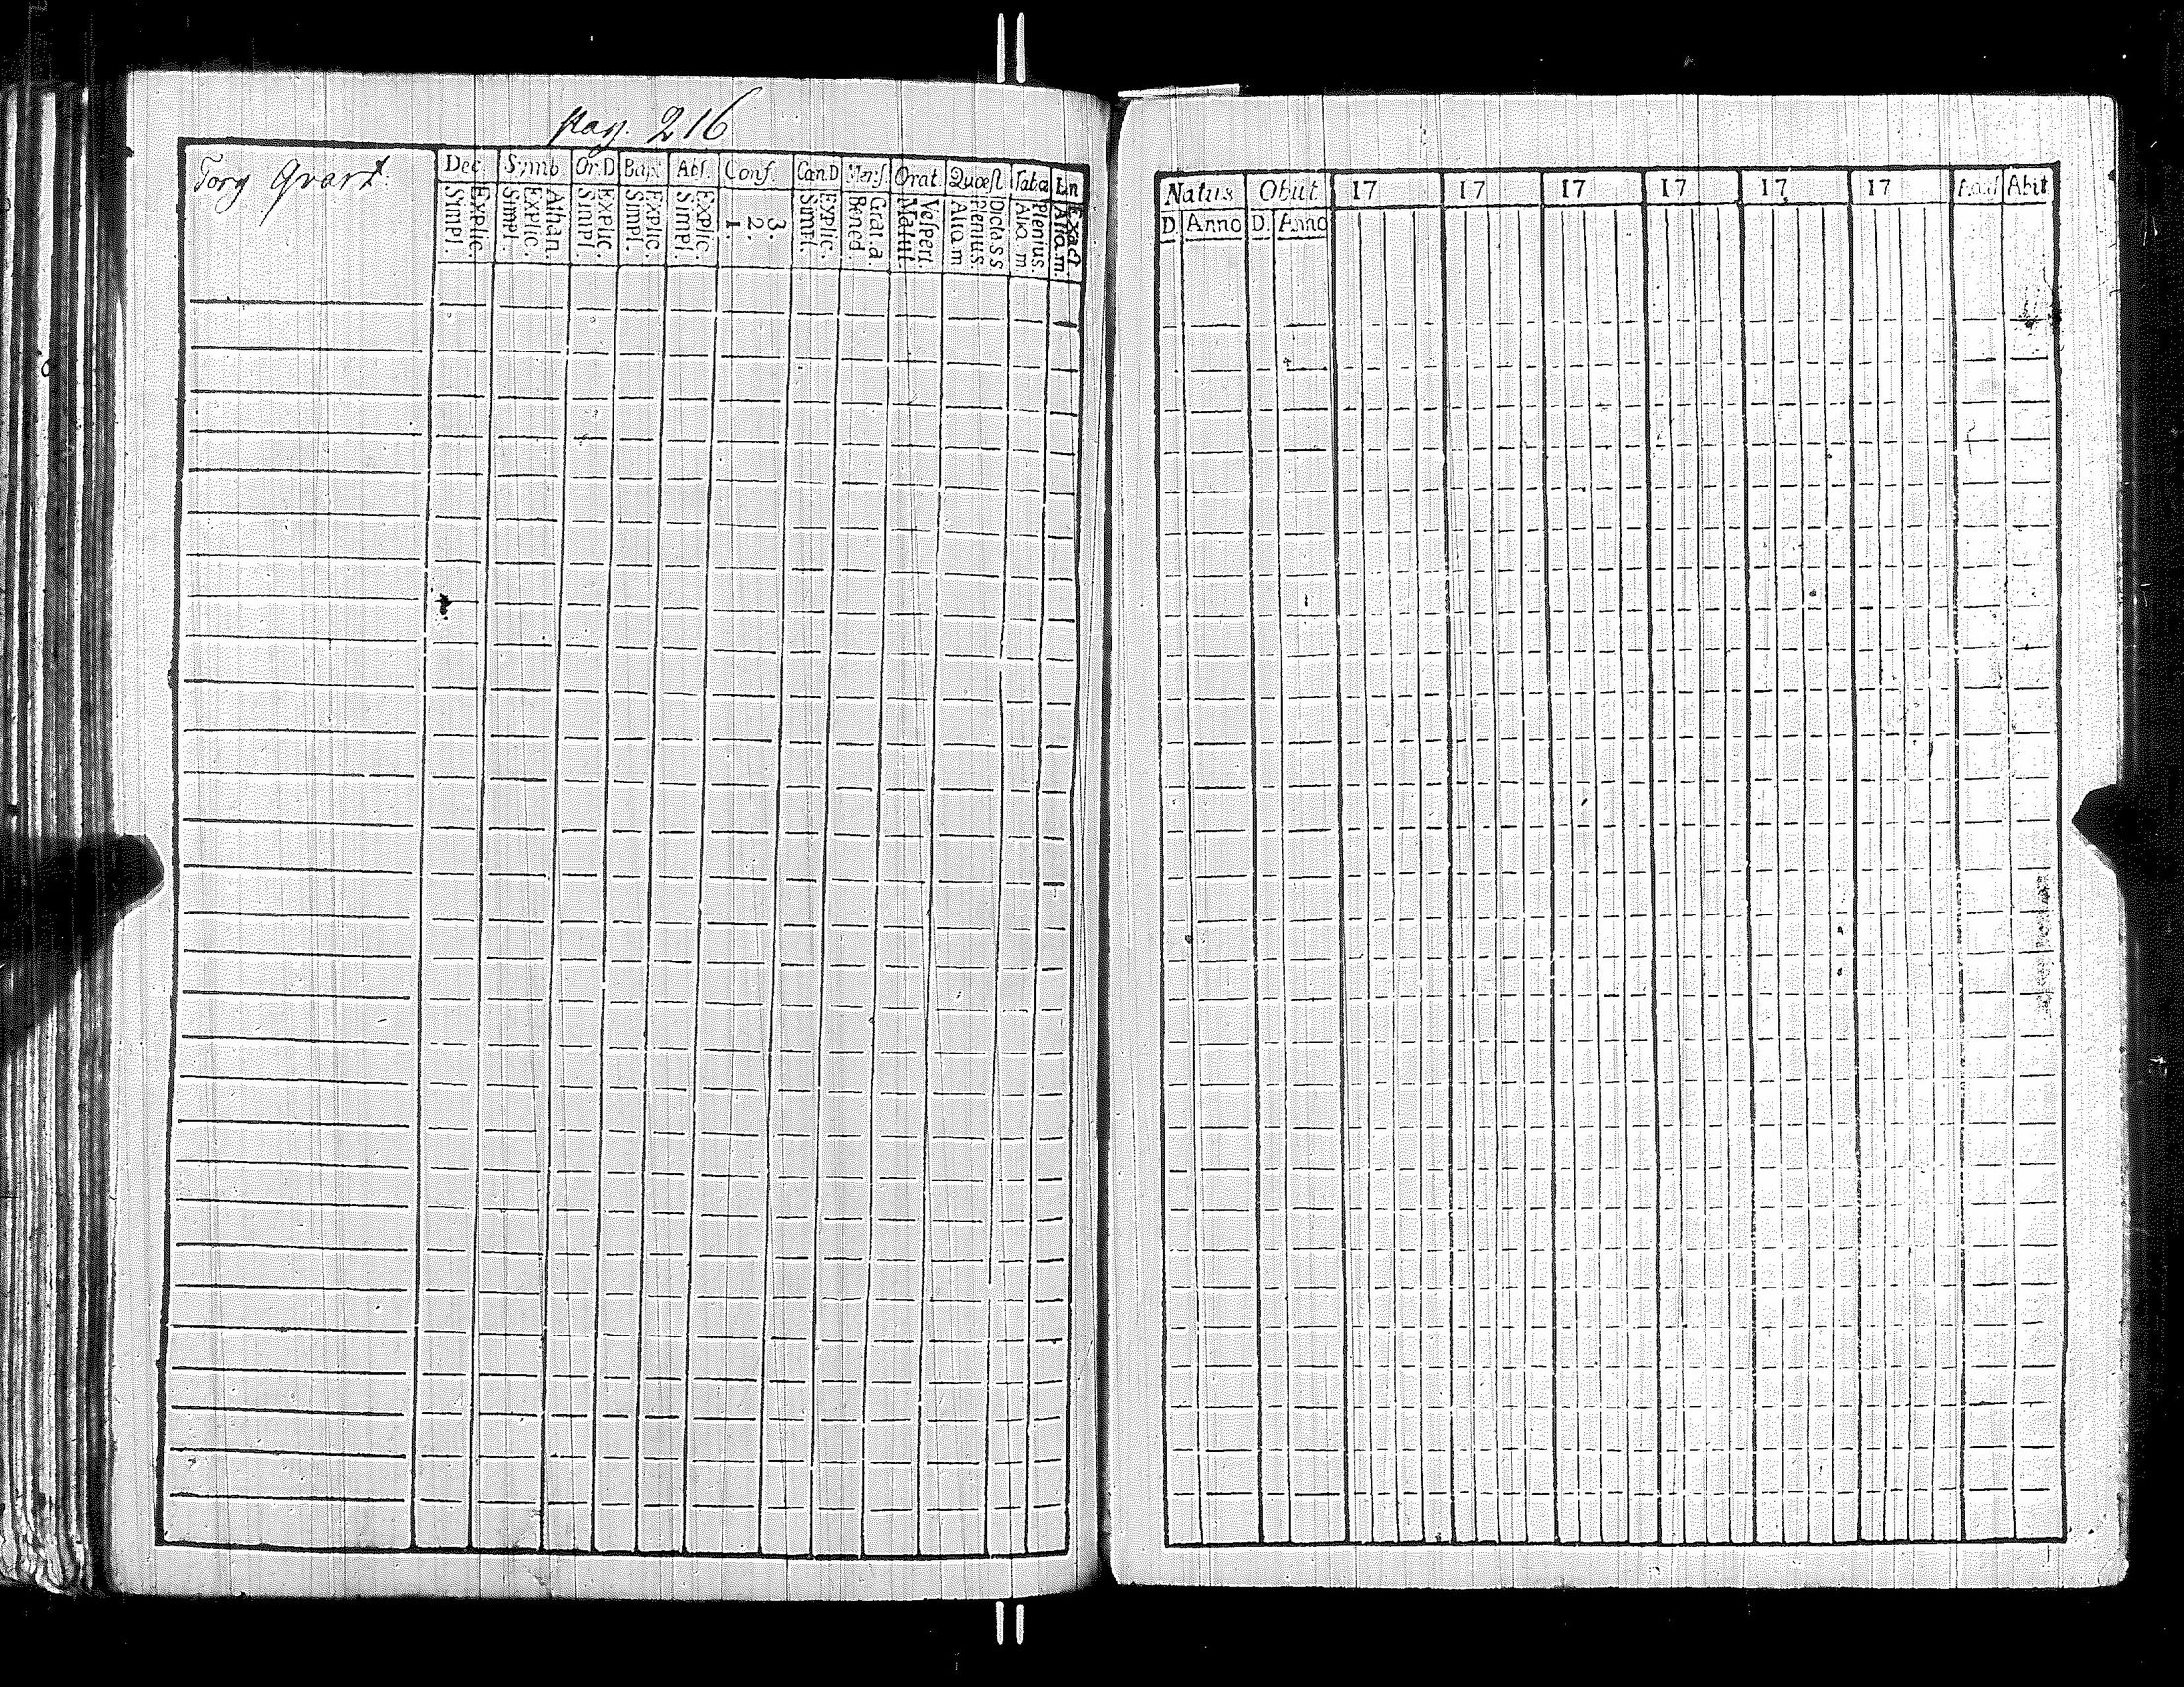 pag. 216
Torg Qvart.
Dec. Symb. Or.D Bapt. Abs. Conf. Can.D Mens. Orat. Quæst. Taba
Simpl. Explic. Simpl. Explic. Athan. Simpl. Explic. Simpl. Explic. Simpl. Explic. 1. 2. 3. Simpl. Explic. Bened. Grat. a. Matut. Vesperi. Alia m Plenius. Dicta s s Alia m Plenius. Alia m. Exact
Natus Obiit 17 17 17 17 17 17 Abit
D. Anno D. Anno